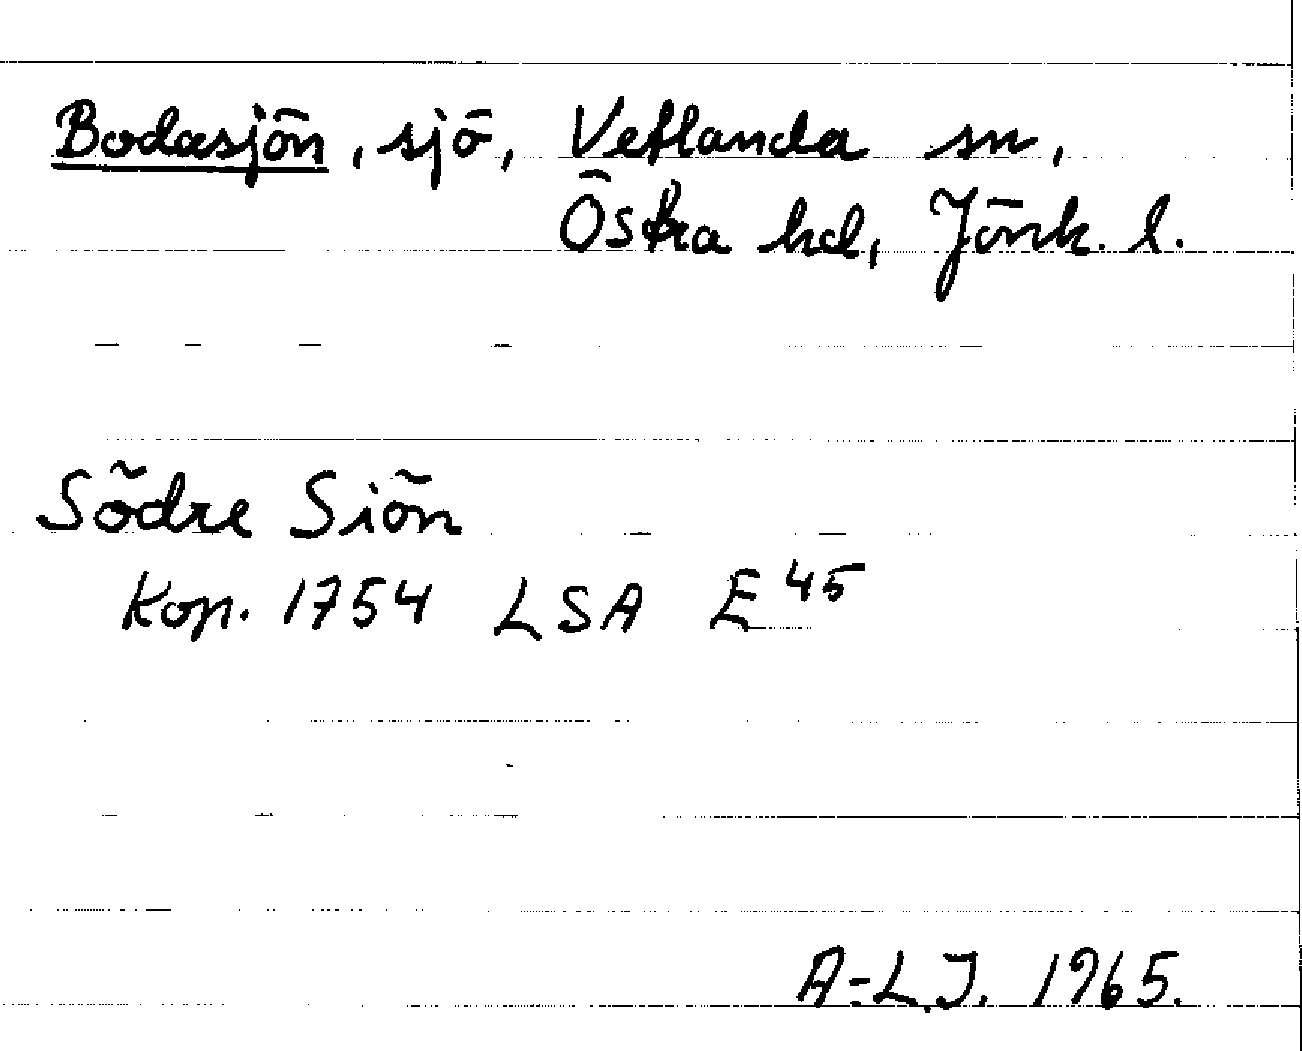 Bodasjön, sjö, Vetlanda sn,
Östra hd, Jönk. l.
Södre Siön
Kop. 1754 LSA E 45
A-L.J. 1965.